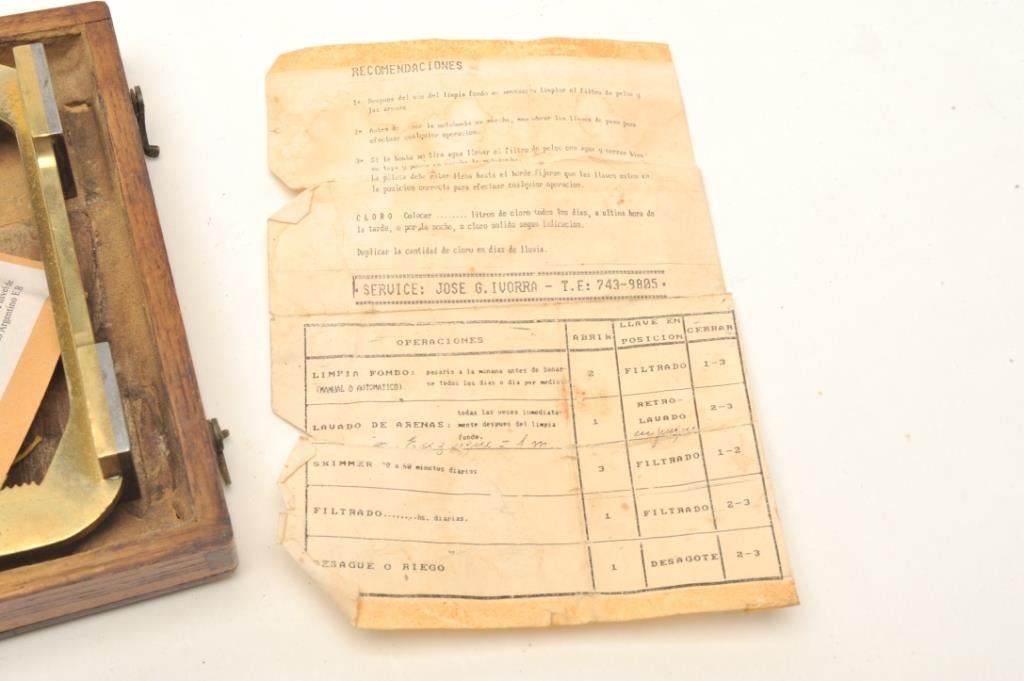 RECOMENDACIONES
1º Despues del uso del limpia fondo es necesario limpiar el filtro de pelos y
las arenas
2º Antes de la motobomba en marcha, abrir las llaves de paso para
efectuar cualquier operacion.
3º Si la bomba no tira agua llenar el filtro de pelos con agua y cerrar bien
su tapa y poner en marcha la motobomba.
La pileta debe estar llena hasta el borde.fijarse que las llaves esten en
la posicion correcta para efectuar cualquier operacion.
CLORO Colocar ........ litros de cloro todos los dias, a ultima hora de
la tarde, o por la noche, o cloro solido segun indicacion.
Duplicar la cantidad de cloro en dias de lluvia.
SERVICE: JOSE G.IVORRA - T.E: 743-9805
OPERACIONES ABRIR LLAVE EN POSICION CERRAR
LIMPIA FONDO: pesarlo a la manana antes de banar-
(MANUAL O AUTOMATICO) se todos los dias o dia por medio
2 FILTRADO 1-3
LAVADO DE ARENAS: todas las veces inmediata-
mente despues del limpia
fondo.
1 RETRO-
LAVADO
enjuague
2-3
SKIMMER 30 a 60 minutos diarios 3 FILTRADO 1-2
FILTRADO.......hs. diarias. 1 FILTRADO 2-3
DESAGUE O RIEGO 1 DESAGOTE 2-3
Argentino E.B